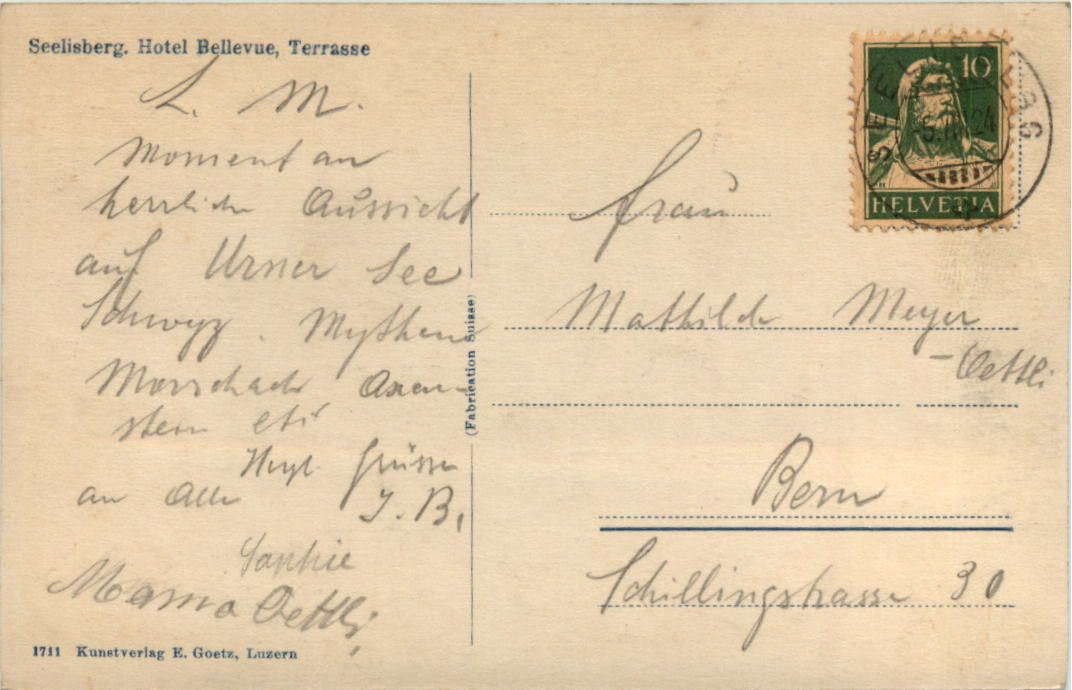 Seelisberg. Hotel Bellevue, Terrasse
L. M.
Moment an
herrliche Aussicht
auf Urner See
Schwyz. Mythen
Morschach Axen-
stein etc
Herzl. Grüsse
an Alle J. B.
Sophie
Mama Oettli
1711 Kunstverlag E. Goetz, Luzern
(Fabrication Suisse)
10
HELVETIA
SEELISBERG
Frau
Mathilde Meyer
-Oettli
Bern
Schillingstrasse 30